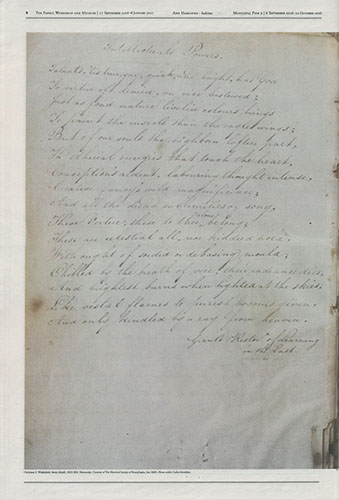 8 The Fabric Workshop and Museum | 17 September 2016–8 January 2017 Ann Hamilton · habitus Municipal Pier 9 | 17 September 2016–10 October 2016
Intellectual Powers.
Talents, 'tis true, gay, quick, and bright, has God
To virtue oft denied, on vice bestowed;
Just as fond nature livelier colours brings
To paint the insects than the eagle's wings;
But of our souls the highborn loftier part,
Th' ethereal energies that touch the heart,
Conceptions ardent, labouring thought intense,
Creative fancy's wild magnificence,
And all the dread sublimities of song,
These Virtue, these to thee alone belong;
These are celestial all, nor kindred hold
With aught of sordid or debasing mould;
Chilled by the breath of vice their radiance dies,
And brightest burns when lighted at the skies;
Like vestal flames to purest bosoms given,
And only kindled by a ray from heaven.
Grant's "Restor" of learning
in the East.